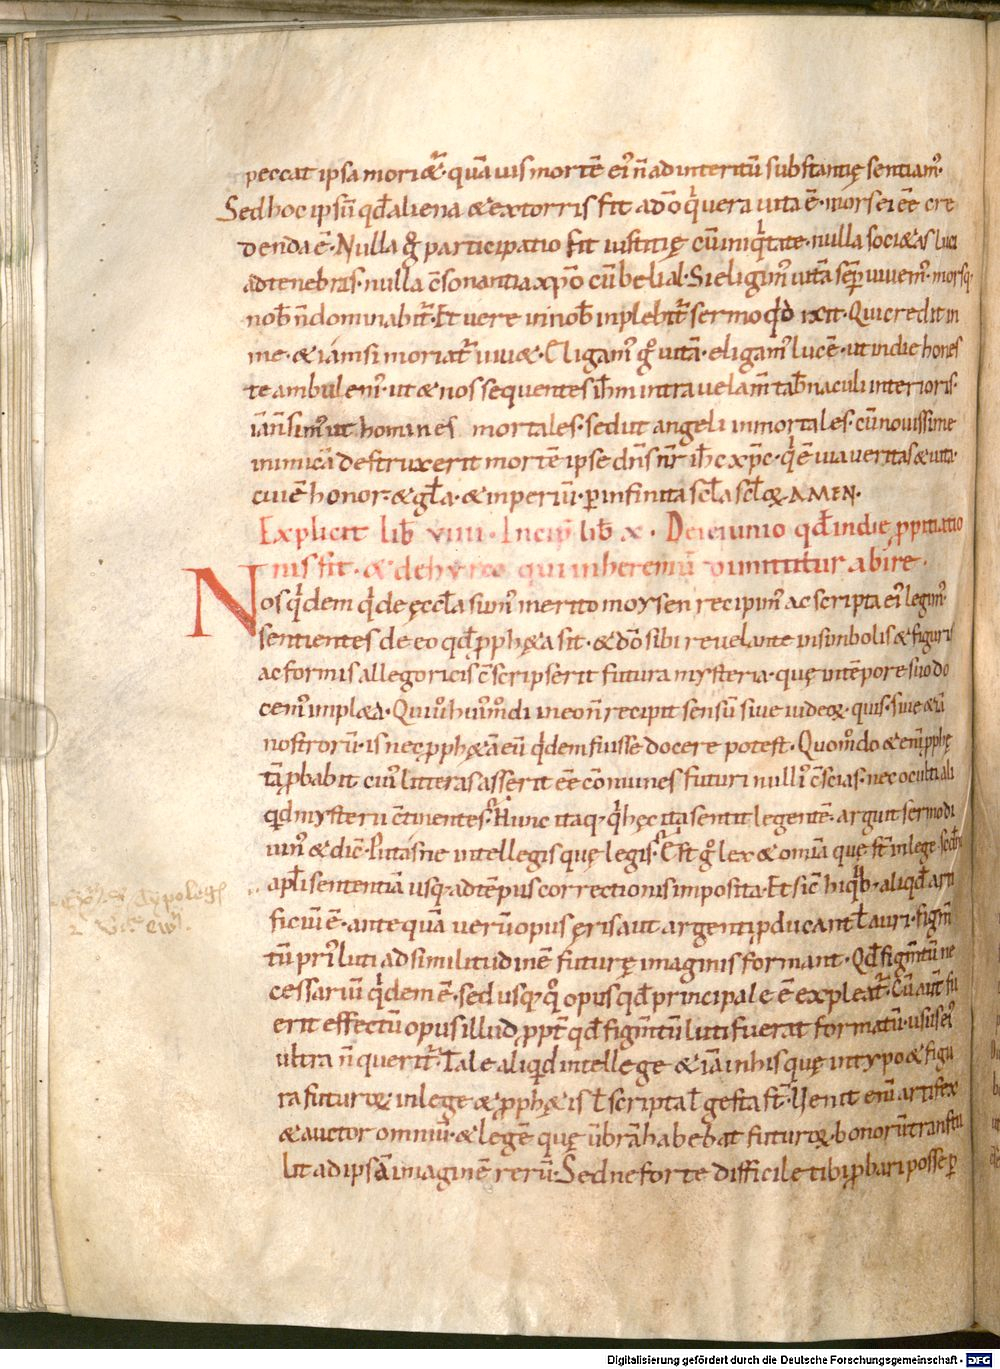 peccat ipsa morietᷣ· quāuis mortē ei᾽ n̄ ad interitū substantię sentiam᾽·
Sed hoc ipsū qđ aliena & extorris fit a dō q̇ uera uita ē· mors ei eē cre
denda ē· Nulla ḡ participatio fit iustitię cū iniq̇tate· nulla soci&as luci
ad tenebras· nulla c̄sonantia xp̄o cū belial· Si eligim᾽ uitā sēp uiuem᾽· morsq·
nob̄ n̄ dominabitᷣ· Et uere in nob̄ inplebitᷣ sermo qđ dixit· Qui credit in
me· & iāmsi moriatᷣ uiu&· Eligam᾽ ḡ uitā· eligam᾽ lucē· ut in die hones
te ambulem᾽· ut & nos sequentes ih̄m intra uelam̄ tab̄naculi interioris·
iā n̄ sim᾽ ut homines mortales· sed ut angeli inmortales· cū nouissime
inimicā destruxerit mortē ipse dn̄s nr̄ ih̄c xp̄c· q̇ ē uia ueritas & uita·
cui ē honor· & gl̄a· & inperiū· p infinita scl̄a scl̄oꝝ· AMEN·
Explicit lib̄ VIIII· Incip̄ lib̄ X· De ieiunio qđ in die ꝓpitiatio
nis fit· & de hyrco qui in heremū dimittitur abire·
Nos q̇dem q̇ de ęccl̄a sum᾽ merito moysen recipim᾽ ac scripta ei᾽ legim᾽·
sentientes de eo qđ ꝓph&a sit· & dō sibi reuelante in simbolis & figuris
ac formis allegoricis c̄scripserit futura mysteria· quę in tēpore suo do
cem᾽ inpl&a· Qui u̇ hui᾽m̊di in eo n̄ recipit sensū siue iudeoꝝ· quis· siue &iā
nostrorū· is nec ꝓph&ā eū q̇dem fuisse docere potest· Quom̊do & eni᾽ ꝓphę
tā ꝓbabit cui᾽ litteras asserit eē cōmunes futuri nulli᾽ c̄scias· nec occulti ali
qđ mysterii c̄tinentes· Nunc itaq· q̇ hęc ita sentit legentē· arguit sermo di
uin᾽ & dic̄· Putasne intellegis quę legis· Est ḡ lex & omīa quę st̄ in lege· secd̄m
apl̄i sententiā usq· ad tēpus correctionis imposita· Et sic̄ hi q̇b· aliqđ arti
ficiū ē· ante quā uerū opus ęris aut argenti ꝓducant ł auri· figm̄
tū pri᾽ luti ad similitudinē futurę imaginis formant· Qđ figm̄tū ne
cessariū q̇dem ē· sed usq· q̊ opus qđ principale ē expleatᷣ· Cū aut̄ fu
erit effectū opus illud ꝓpt̄ qđ figm̄tū luti fuerat formatū· usus ei᾽
ultra n̄ queritᷣ· Tale aliquid intellege & iā in his quę in typo & figu
ra futuroꝝ in lege & ꝓph&is ł scripta ł gesta st̄· Venit eni᾽ artifex
& auctor omniū· & legē quę ūbrā habebat futuroꝝ bonorū transtu
lit ad ipsā imaginē rerū· Sed ne forte difficile tibi ꝓbari posse p